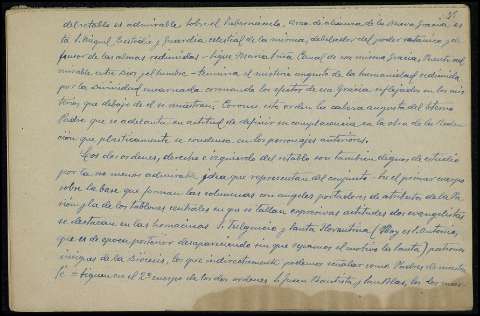 31
del retablo es admirable. Sobre el Tabernáculo, arca diamana de la Nueva Gracia, es
tá S. Miguel, Custodio y Guardia celestial de la misma, debelador del poder satánico, y de
fensor de las almas redimidas - Sigue María Purísima, Canal de esa misma Gracia, Puente ad
mirable entre Dios y el hombre - termina el misterio augusto de la humanidad redimida,
por la Divinidad encarnada, coronando los efectos de esa Gracia, reflejados en los mis
terios que debajo de él se muestran. Corona este orden la cabeza augusta del Eterno
Padre que se adelanta en actitud de definir su complacencia en la obra de la Reden
ción que plásticamente se condensa en los personajes anteriores.
Los dos órdenes, derecho e izquierdo del retablo son también dignos de estudio
por la no menos admirable idea que representan del conjunto. En el primer cuerpo
sobre la base que forman las columnas con ángeles portadores de atributos de la Pa
sión y la de los tableros centrales en que se tallan en preciosas actitudes dos evangelistas
se destacan en las hornacinas S. Fulgencio y Santa Florentina (Hoy es S. Antonio,
que es de época posterior desapareciendo sin que sepamos el motivo la Santa) patronos
insignes de la Diócesis, los que indirectamente podemos señalar como Padres de nuestra
fé = Siguen en el 2º cuerpo de los dos órdenes S. Juan Bautista y San Blas, los dos